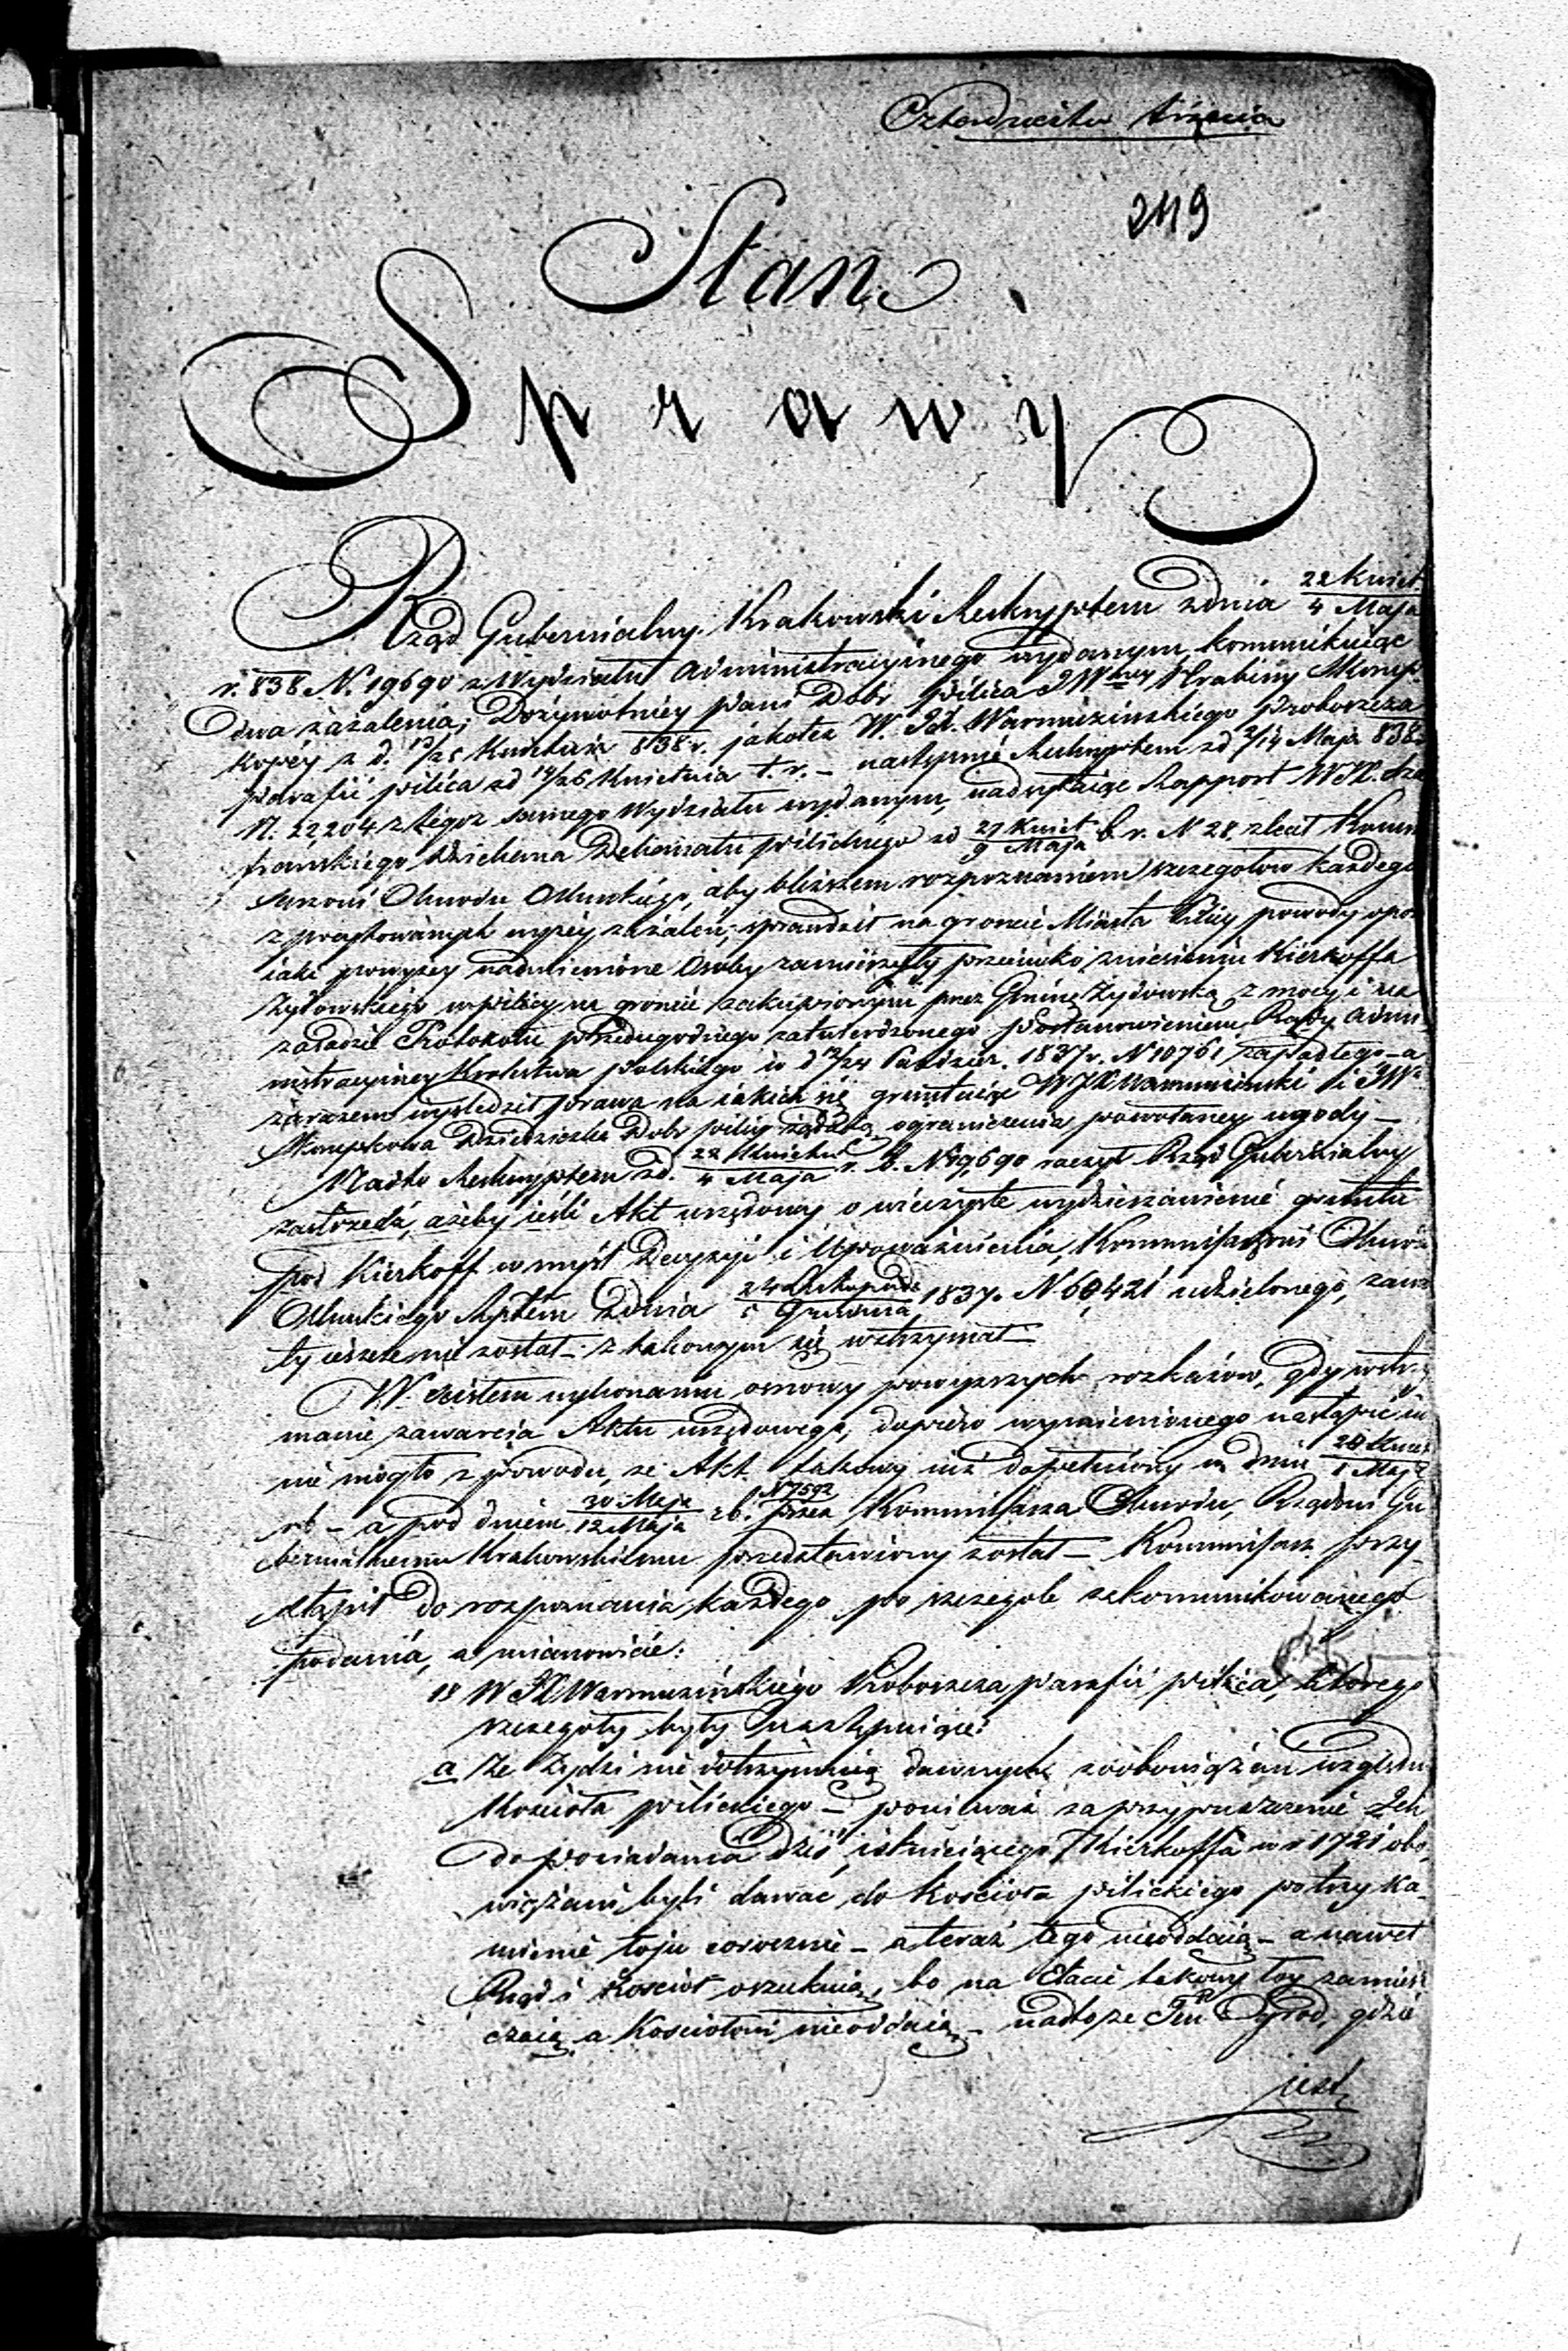 Czterdzieści trzecia
249
Stan
Sprawy
Rząd Gubernialny Krakowski Reskryptem z dnia 22 Kwiet. / 4 Maja
r. 838 N. 19690 z Wydziału Administracyjnego wydanym kommunikuiąc
dwa zażalenia; Dożywotniey Pani Dobr Pilica JWney Hrabiny
z d. 13/25 Kwietnia 838 r. jakoteż W. JX. Warmuzinskiego Proboszcza
parafii Pilica zd 14/26 Kwietnia t. r. – następnie Reskryptem zd 2/14 Maja 838
N. 22204 z tegoż samego Wydziału wydanym, nadsyłaiąc Rapport WJX.
Dziekana Dekanatu Pilickiego zd 27 Kwiet / 9 Maja b. r. N 28, zlecił Kom
Obwodu Olkuskiego, aby bliższem rozpoznaniem szczegołow każdego
z wyżey zażaleń, sprawdził na gruncie Miasta Pilicy powody
iaki powyżey nadmienione Osoby przeciwko zniesieniu Kierkoffa
Żydowskiego w Pilicy na gruncie zakupionym przez Gminę Żydowską z mocy i na
zasadzie Protokołu przedugodnego zatwierdzonego Postanowieniem Rady Admi-
nistracyiney Krolestwa Polskiego w d 12/24 Paździer. 1837 r. N 10761 zapadłego – a
zarazem wyśledził prawa na iakich się gruntuiąc WJX Warmuzinski i JW
Dziedziczka Dobr Pilicy żądaią ograniczenia powołaney ugody –
Nadto Reskryptem zd. 22 Kwietnia / 4 Maja r. b. N 19,690 raczył Rząd Gubernialny
zastrzedz, ażeby ieśli Akt urzędowy o wieczyste wydzierżawienie gruntu
pod Kierkoff w myśl Decyzyi i Upoważnienia, Kommissarzowi Obwo
Olkuskiego Rptem z dnia 24 Listopada / 5 Grudnia 1837. N 60,421 udzielonego, zawar
ty ieszcze nie został – z takowym się wstrzymał –
W ścisłem wykonaniu osnowy powyższych rozkazow, gdy wstrzy
manie zawarcia Aktu urzędowego, dopiero wymienionego nastąpić iu
nie mogło z powodu, że Akt takowy iuż dopełniony w dniu 20 Kwiet / 1 Maja
rb – a pod dniem 30 / 12 Maja rb. N 7592 przez Kommissarza Obwodu, Rządowi Gu
bernialnemu Krakowskiemu przedstawiony został – Kommissarz przy-
stąpił do rozpoznania każdego po szczegole zakommunikowanego
podania, a mianowicie:
1o WJX Warmuzińskiego Proboszcza parafii Pilica, ktorego
szczegoły były następuiące:
a Że Żydzi nie dotrzymuią dawnych zobowiązań względem
Kościoła Pilickiego – ponieważ za przypuszczenie Ich
do posiadania dziś istnieiącego Kierkoffa w r 1721 obo
wiązani byli dawać do Kościoła Pilickiego po trzy ka-
mienie łoju corocznie – a teraz tego nieoddaią – a nawet
Rząd i Kościoł oszukuią, bo na Etacie takowy łoy zamiesz
czaią a Kościołowi nieoddaią – nadto że Ten Ogrod, gdzie
jest